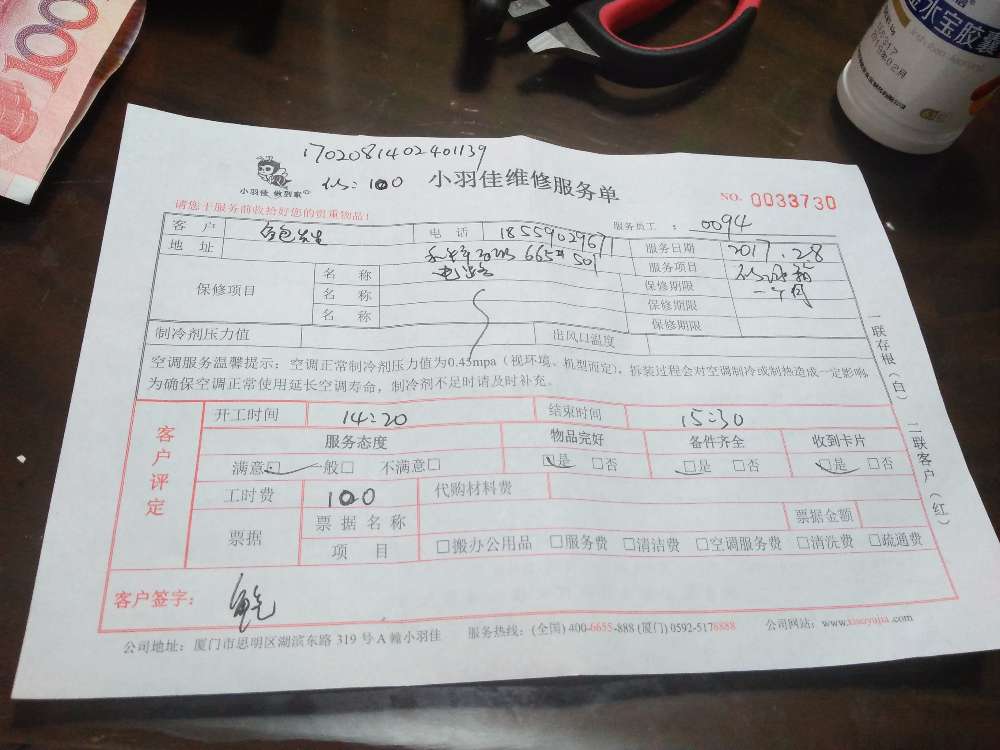 100
水宝胶囊
1702081402401139
小羽佳 做到家
100
小羽佳维修服务单
NO. 0033730
请您于服务前收拾好您的贵重物品！
服务员工： 0094
客户 先生 电话 18559029671 服务日期 2017.2.8
地址 665# 501 服务项目
保修项目 名称 保修期限 一个月
名称 保修期限
名称 保修期限
制冷剂压力值 出风口温度
空调服务温馨提示：空调正常制冷剂压力值为0.45mpa（视环境、机型而定），拆装过程会对空调制冷或制热造成一定影响，
为确保空调正常使用延长空调寿命，制冷剂不足时请及时补充。
一联存根（白） 二联客户（红）
客户评定
开工时间 14:20 结束时间 15:30
服务态度 物品完好 备件齐全 收到卡片
满意□ 一般□ 不满意□ □是 □否 □是 □否 □是 □否
工时费 100 代购材料费
票据 票据名称 票据金额
项目 □搬办公用品 □服务费 □清洁费 □空调服务费 □清洗费 □疏通费
客户签字：
公司地址：厦门市思明区湖滨东路 319 号 A 幢小羽佳 服务热线：(全国) 400-6655-888 (厦门) 0592-5178888 公司网站：www.xiaoyujia.com